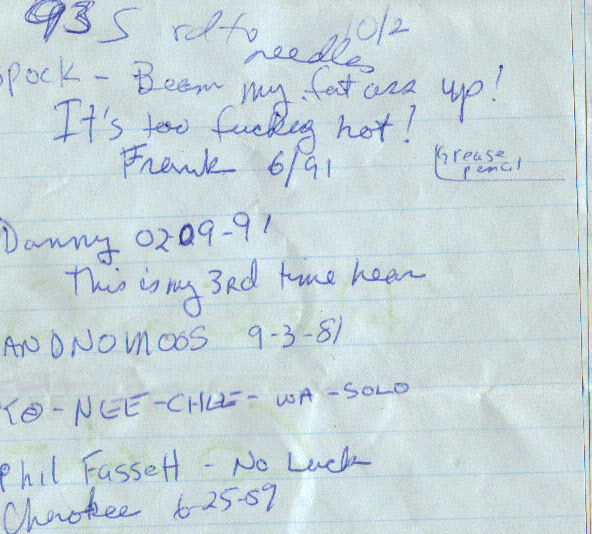 93 S rd to needles 10/2
Spock - Beam my fat ass up!
It's too fuckeg hot!
Frank 6/91
Grease pencil
Danny 0209-91
This is my 3rd time hear
AND NO MOOS 9-3-81
KO-NEE-CHEE-WA-SOLO
Phil Fassett - No Luck
Cherokee 6-25-59